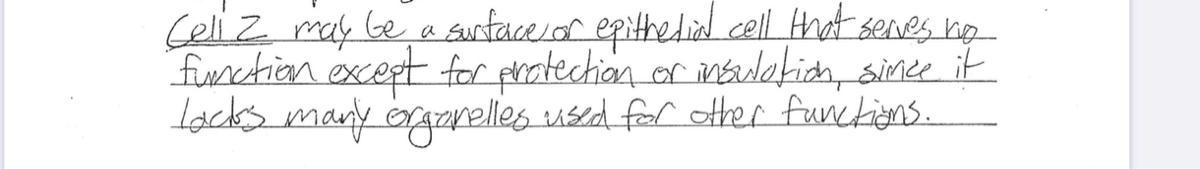 Cell Z may be a surface/or epithelial cell that serves no
function except for protection or insulation, since it
lacks many organelles used for other functions.